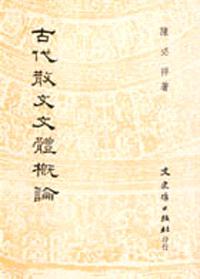 陳必祥著
古代散文文體概論
文史哲出版社印行